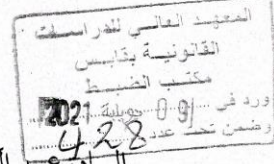 المعهد العالي للدراسات
القانونية بقابس
مكتب الضبط
ورد في 09 جويلية 2021
وضمن تحت عدد 428